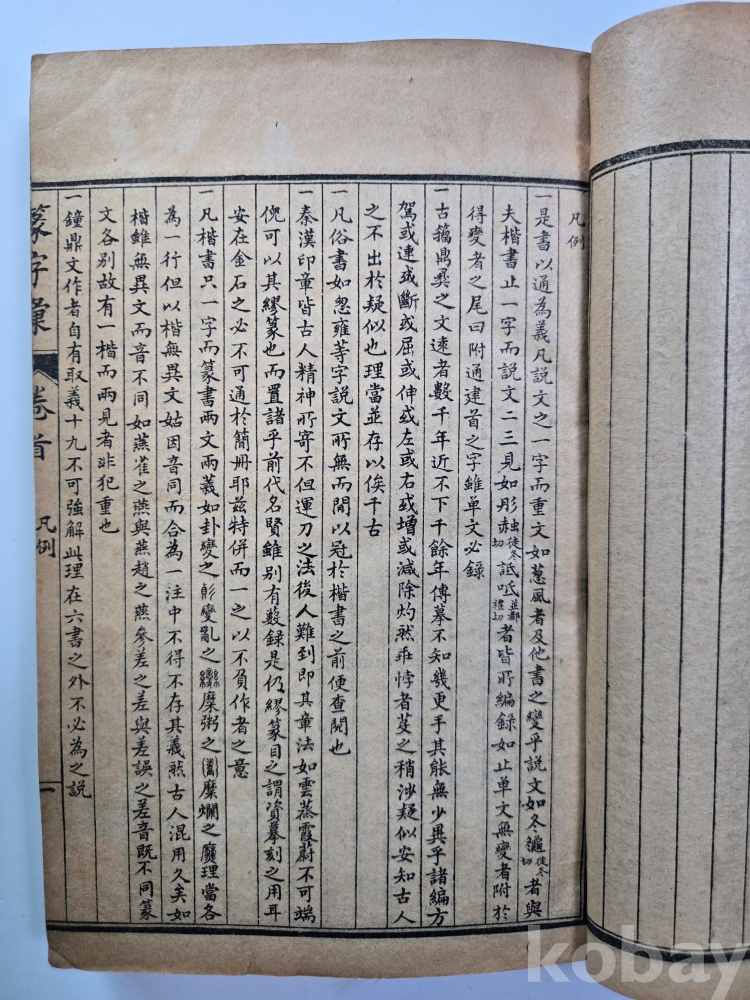 凡例
一是書以通為義凡說文之一字而重文如蔥風者及他書之變乎說文如冬 徒冬切 者與
夫楷書止一字而說文二三見如彤赨 徒冬切 詆呧 並都禮切 者皆所編錄如止单文無變者附於
得變者之尾曰附通建首之字雖单文必錄
一古籀鼎彝之文遠者數千年近不下千餘年傳摹不知幾更手其能無少異乎諸編方
駕或連或斷或屈或伸或左或右或增或減除灼然乖悖者芟之稍涉疑似安知古人
之不出於疑似也理當並存以俟千古
一凡俗書如怱雍等字說文所無而間以冠於楷書之前便查閱也
一秦漢印章皆古人精神所寄不但運刀之法後人難到即其章法如雲蒸霞蔚不可端
倪可以其繆篆也而置諸乎前代名賢雖别有藪錄是仍繆篆目之謂資摹刻之用耳
安在金石之必不可通於簡冊耶兹特併而一之以不負作者之意
一凡楷書只一字而篆書兩文兩義如卦變之 變亂之 糜粥之 糜爛之 理當各
為一行但以楷無異文姑因音同而合為一注中不得不存其義然古人混用久矣如
楷雖無異文而音不同如燕雀之燕與燕趙之燕參差之差與差誤之差音既不同篆
文各别故有一楷而兩見者非犯重也
一鐘鼎文作者自有取義十九不可強解此理在六書之外不必為之説
篆字彙
卷首
凡例
一
kobay